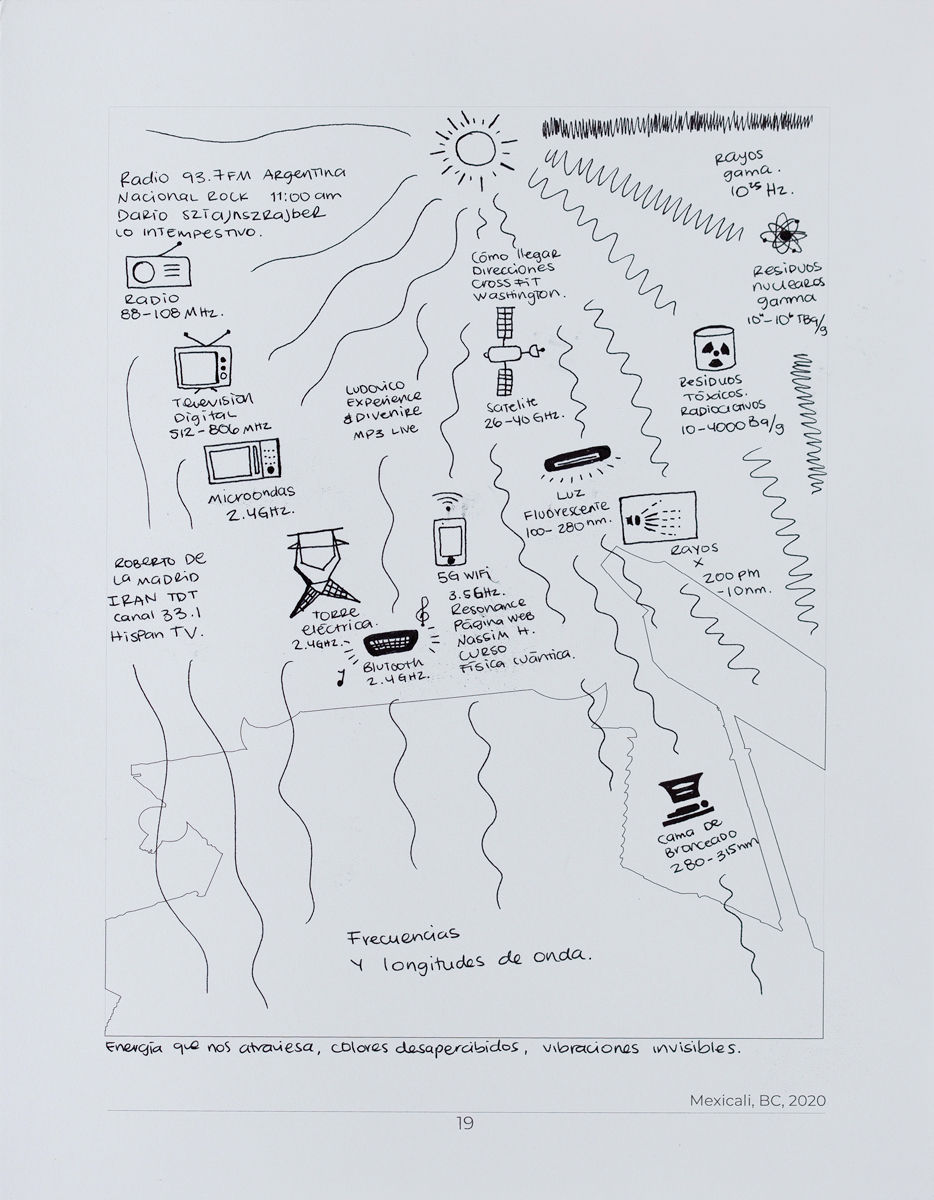 Radio 93.7FM Argentina
Nacional Rock 11:00 am
Dario Sztajnszrajber
Lo intempestivo.
Radio
88-108 MHz.
Television
Digital
512-806 MHz
Microondas
2.4GHz.
Roberto de
la Madrid
IRAN TDT
canal 33.1
Hispan TV.
Torre
eléctrica.
2.4GHz.
Ludovico
Experience
& Divenire
MP3 Live
Blutooth
2.4GHz.
5G WiFi
3.5GHz.
Resonance
Página web
Nassim H.
Curso
Física cuántica.
Cómo llegar
Direcciones
CrossFit
Washington.
Satelite
26-40 GHz.
Luz
Fluorescente
100-280nm.
Rayos
gama.
10²⁵ Hz.
Residuos
nuclearos
gamma
TBq/g
Residuos
Tóxicos.
Radioactivos
10-4000 Bq/g
Rayos
X
200 pm
-10nm.
Cama de
Bronceado
280-315nm
Frecuencias
Y longitudes de onda.
Energía que nos atraviesa, colores desapercibidos, vibraciones invisibles.
Mexicali, BC, 2020
19